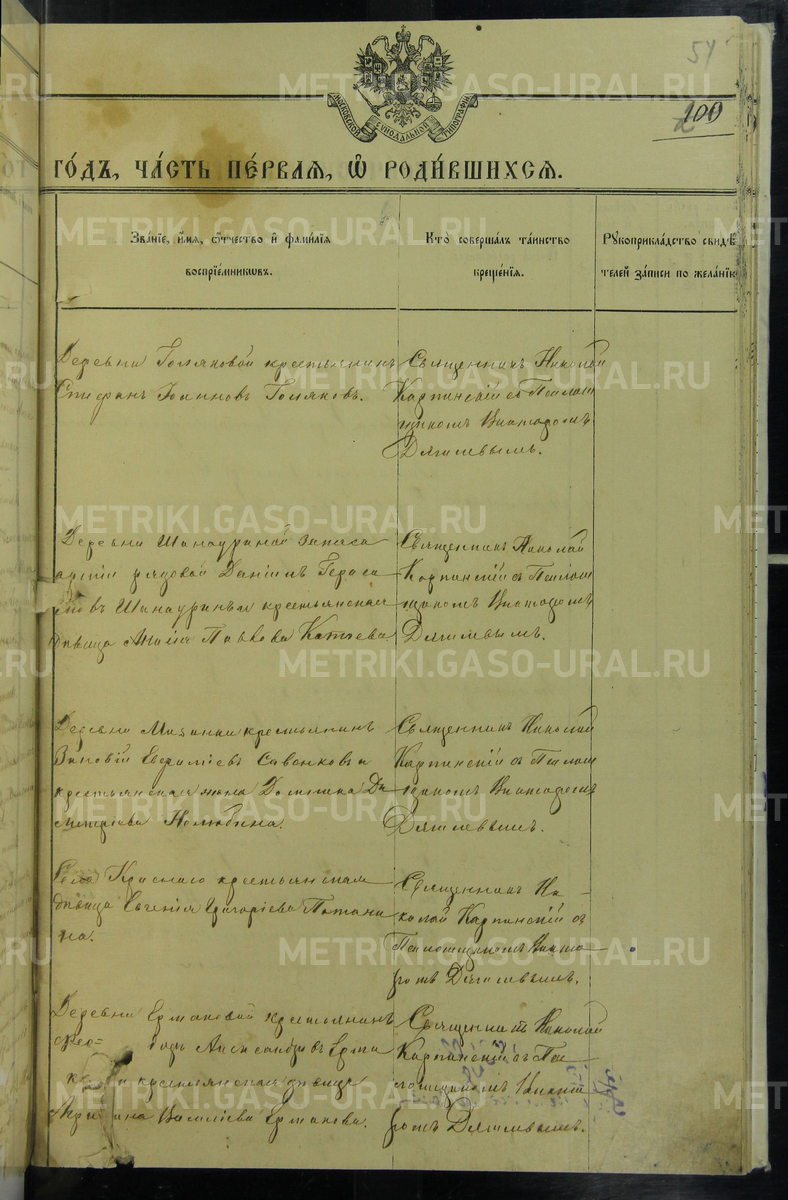 54
100
МОСКОВСКОЙ СѴНОДАЛЬНОЙ ТИПОГРАФІИ
ГО́ДЪ, ЧА́СТЬ ПЕ́РВАЯ, Ѽ РОДИ́ВШИХСЯ.
Зва́ніе, и́мя, ѻ́тчество и҆ фами́лія
воспріе́мникѡвъ.
Кто̀ соверша́лъ та́инство
креще́нія.
Рꙋкоприкла́дство свидѣ́
телей за́писи по жела́нію
Деревни Гомяковой крестьянинъ
Стефанъ Іоанновъ Гомяковъ.
Священникъ Николай
Карпинскій съ Псалом
щикомъ Виктором
Дягилевымъ.
Деревни Шанауриной запаса
арміи рядовой Даніилъ Гераси
мовъ Шанауринъ и крестьянская
дѣвица Павлова
Священникъ Николай
Карпинскій съ Псалом
щикомъ Викторомъ
Дягилевымъ.
Деревни Мазанки крестьянинъ
Зиновій Савенковъ и
крестьянская жена Домника Ди
митріева
Священникъ Николай
Карпинскій съ Псалом
щикомъ Викторомъ
Дягилевымъ.
Села Краснаго крестьянская
дѣвица Евгенія Григоріева Потапи
на.
Священникъ Ни-
колай Карпинскій съ
Псаломщикомъ Викто
ромъ Дягилевымъ.
Деревни Ермаковой крестьянинъ
Ѳео-
доръ Александровъ Ерма
ковъ и крестьянская дѣвица
Василіева Ермакова.
Священникъ Николай
Карпинскій съ Пса
ломщикомъ Викто
ромъ Дягилевымъ.
METRIKI.GASO-URAL.RU